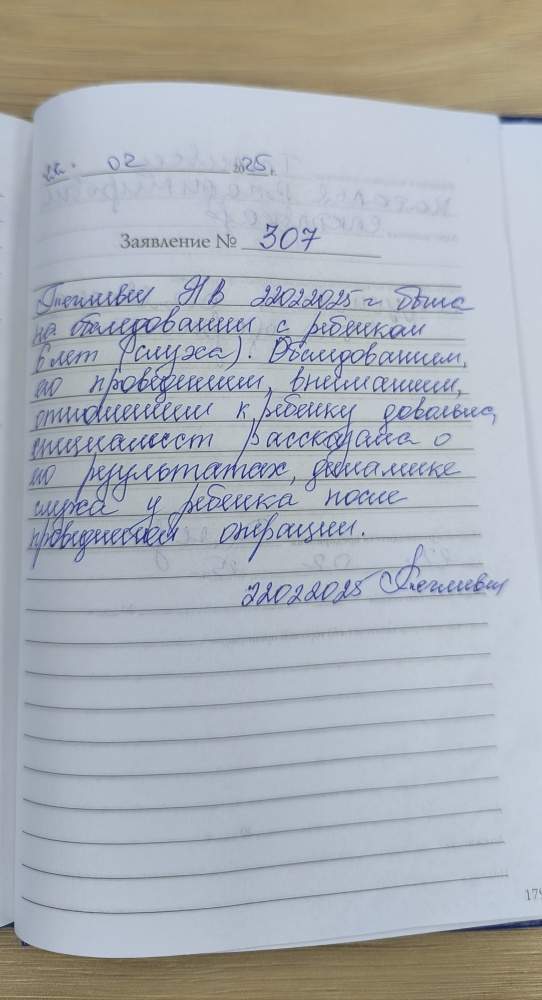 22. 02 2025 г.
Заявление № 307
Я НВ 22022025 г была
на обследовании с ребенком
6 лет (слуха). Обследованием,
его проведением, вниманием,
отношением к ребенку довольна,
специалист рассказала о
его результатах, динамике
слуха у ребенка после
проведенной операции.
22022025
179